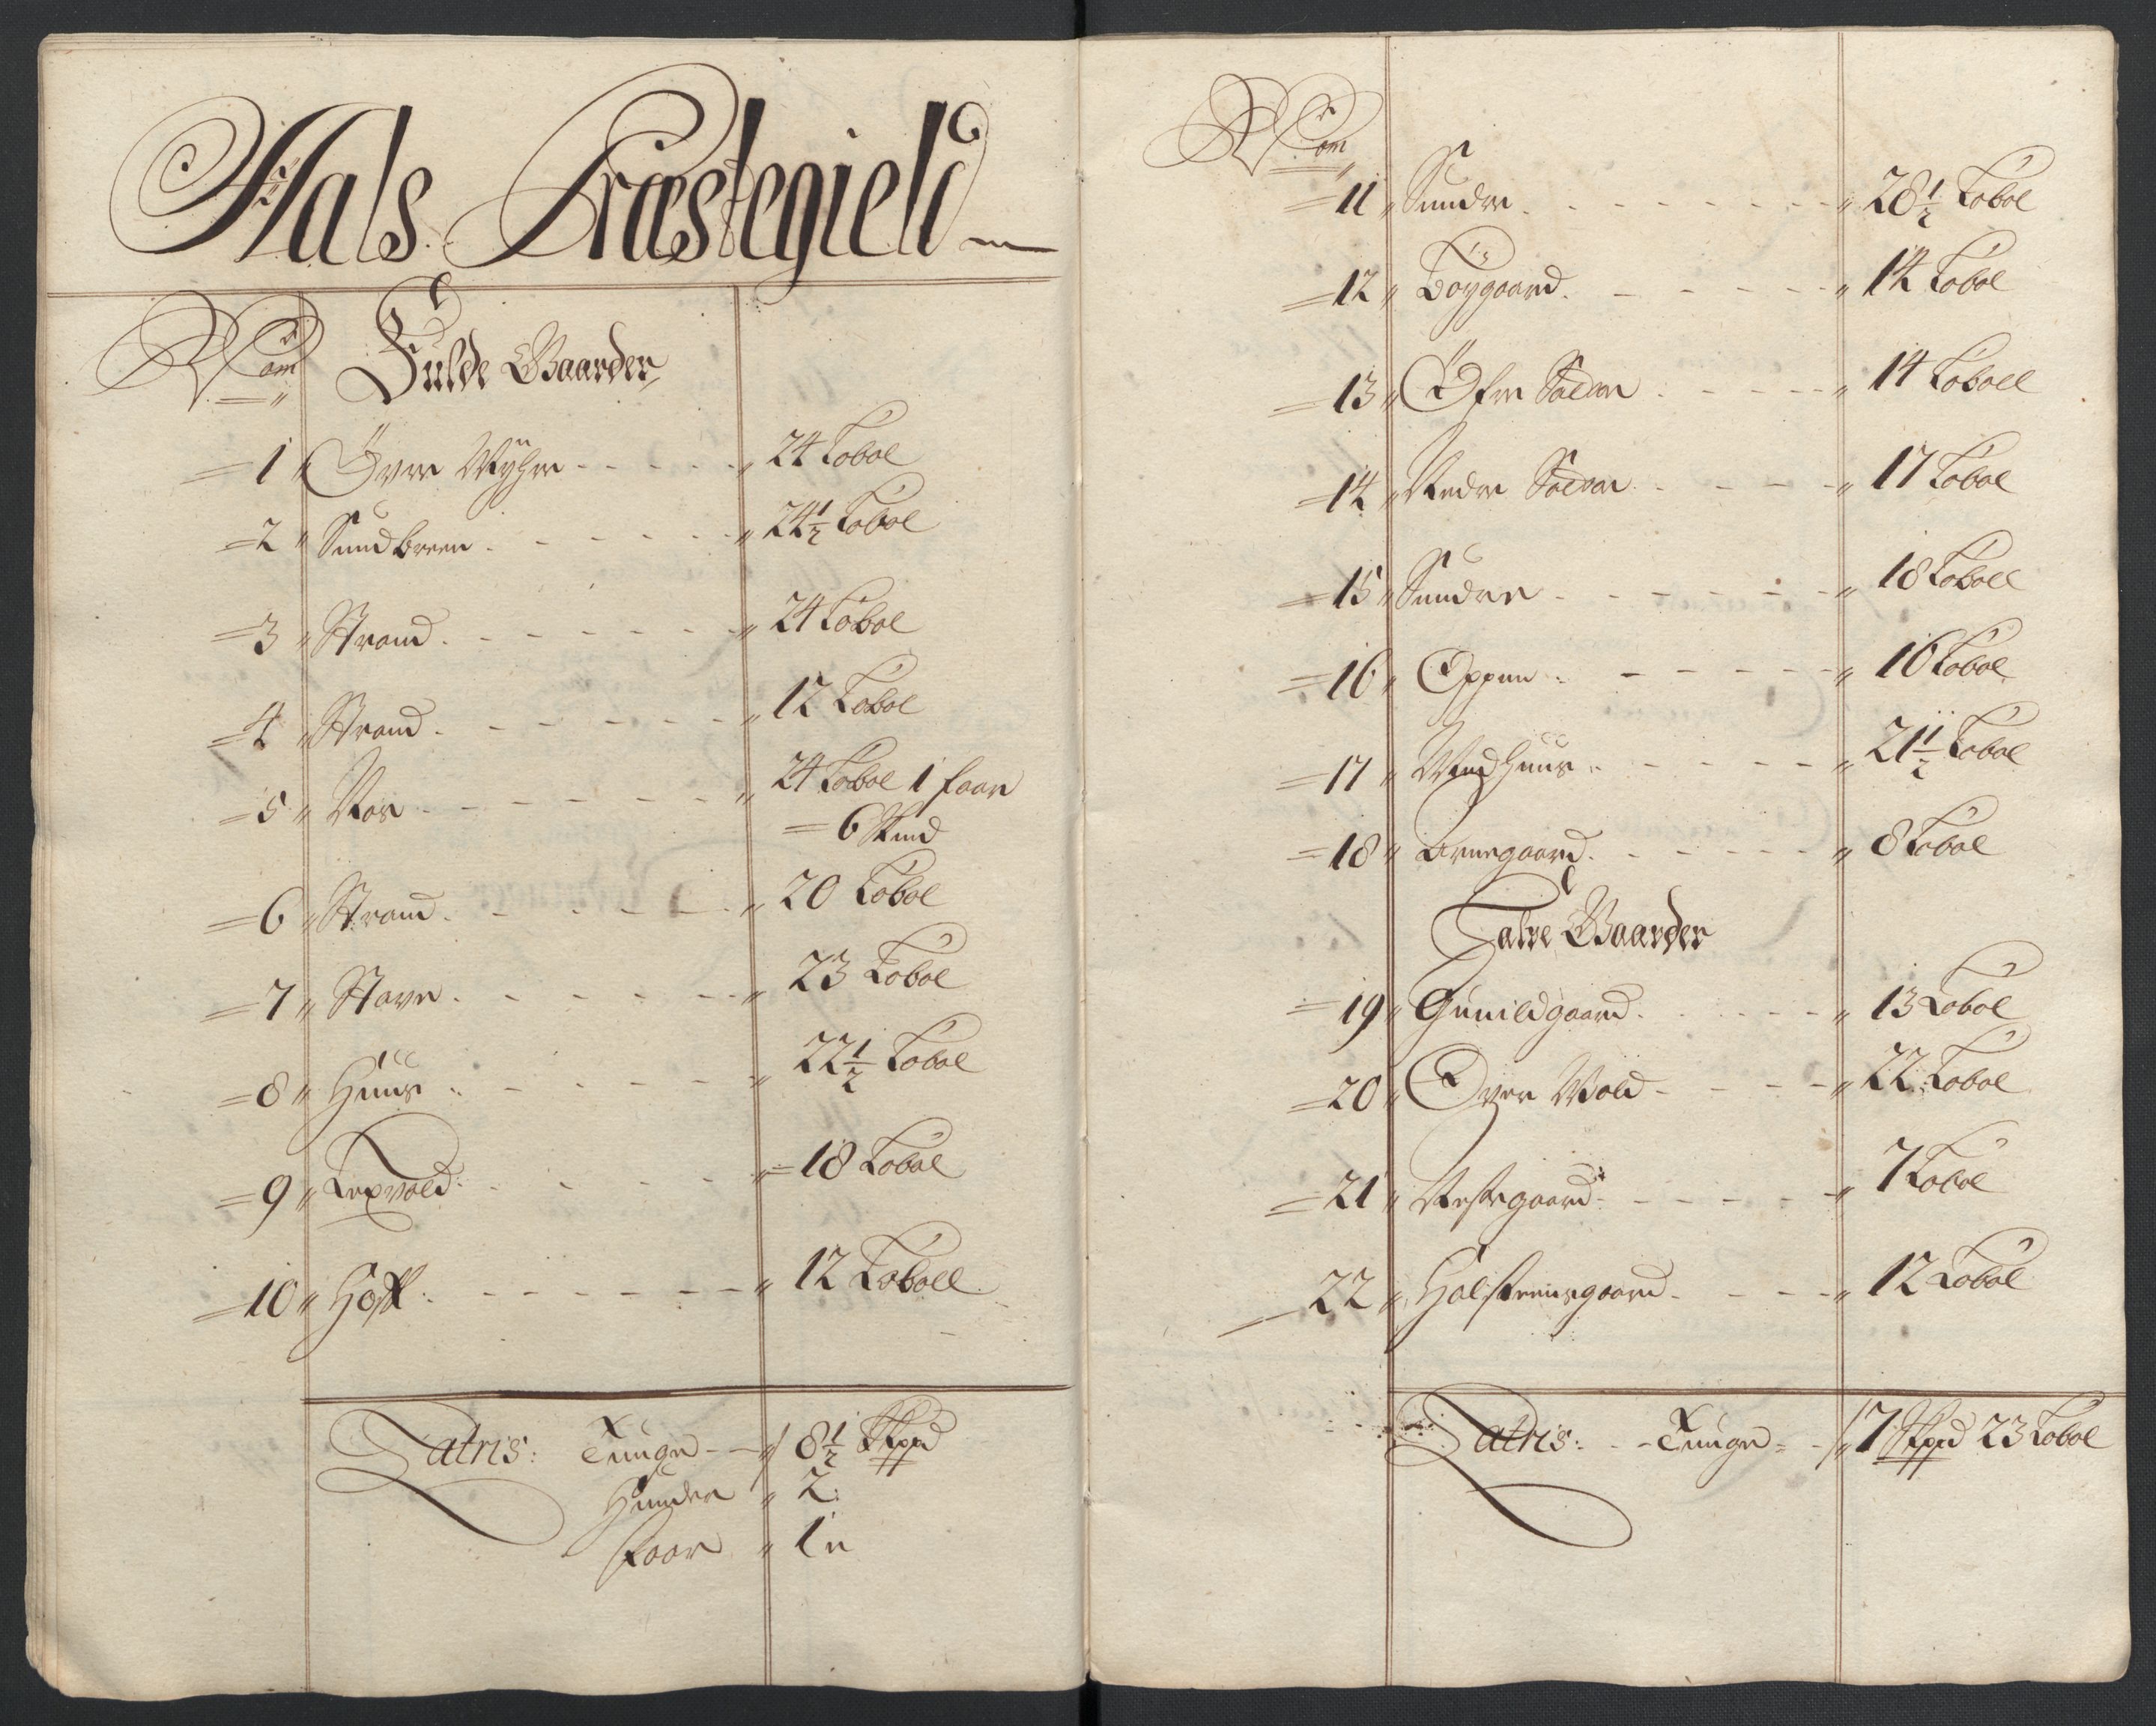 Aals Præstegield
No:
Fulde Gaarder
1 Övre Myhre 24 Lobol
2 Sundbreen 24½ Lobol
3 Strand 24 Lobol
4 Strand 12 Lobol
5 Noss 24 Lobol 1 faar
6 Skind
6 Strand 20 Lobol
7 Stave 23 Lobol
8 Huus 22½ Lobol
9 Lexvold 18 Lobol
10 Hoff 12 Loboll
Latris: Tunge 8½ Skpd
Hunder 2
faar 1
No:
11 Sundre 28½ Lobol
12 Böygaard 14 Lobol
13 Öfre 14 Loboll
14 Nedre 17 Lobol
15 Sundre 18 Loboll
16 Oppen 16 Lobol
17 Medhuus 21½ Lobol
18 Arnegaard 8 Lobol
Halve Gaarder
19 Gunildgaard 13 Lobol
20 Over Vold 22 Lobol
21 Nestegaard 7 Lobol
22 Holsteensgaard 12 Lobol
Latris: Tunge 7 Skpd 23 Lobol